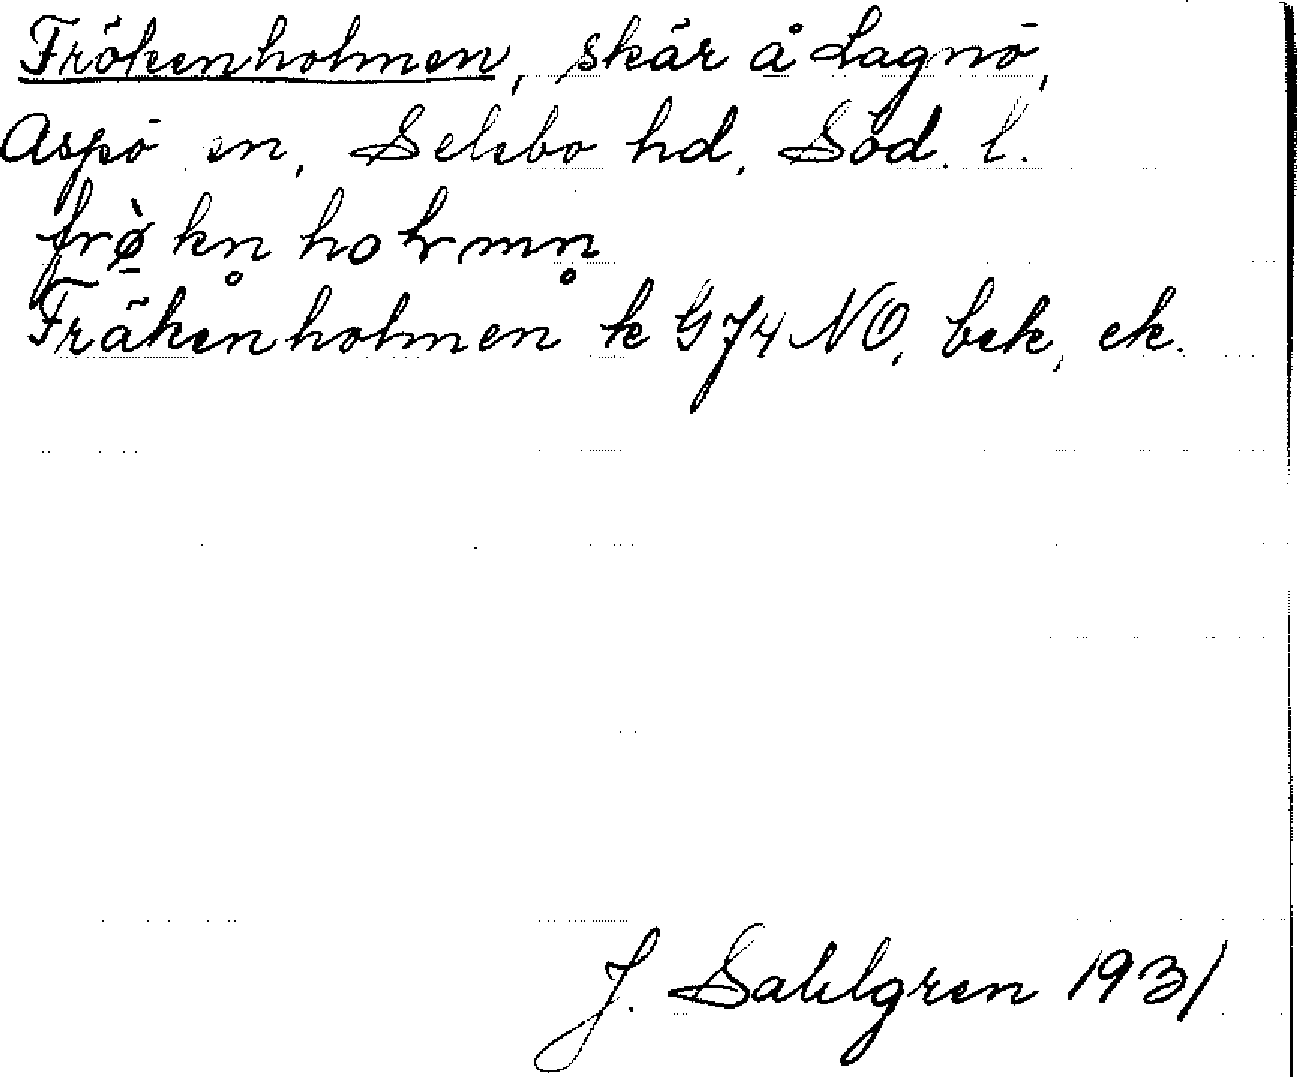 Frökenholmen, skär å Lagnö,
Aspö sn, Selebo hd, Söd. l.
frø̠̀kn̥ holmn̥
Fräkenholmen k G74 NO, bek, ek.
J. Sahlgren 1931